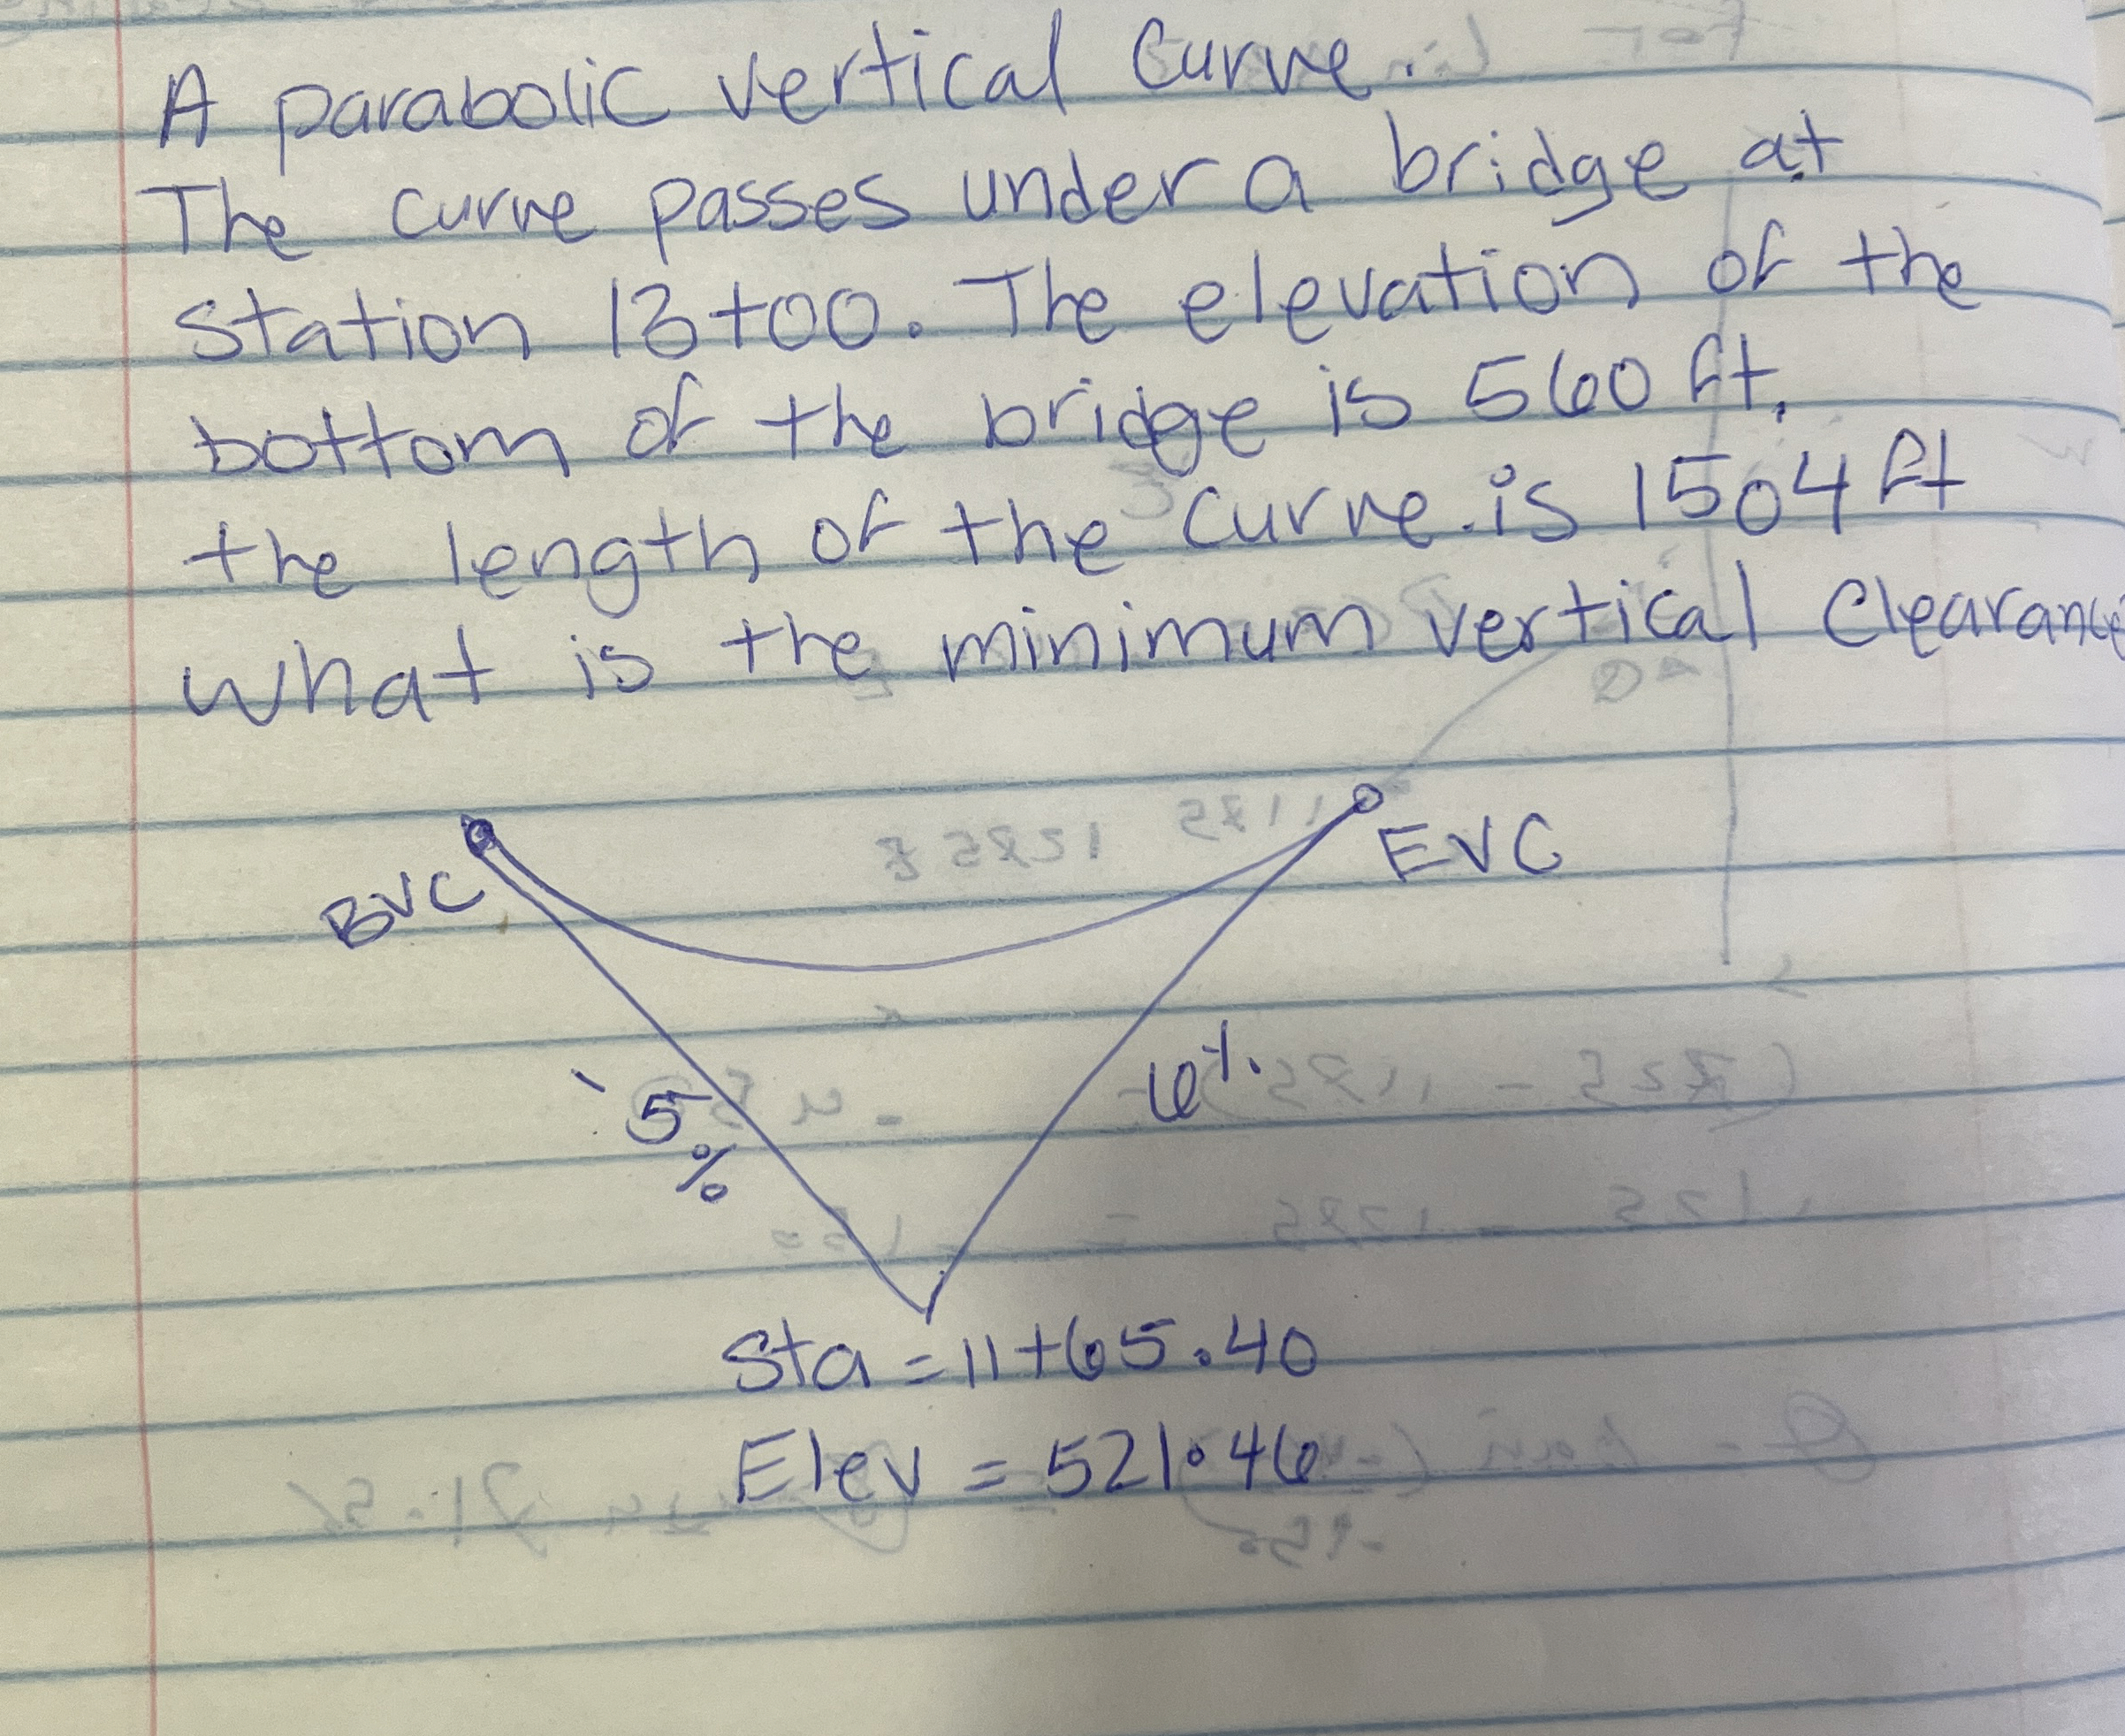 A parabolic vertical curve.
The curve passes under a bridge at
station 13+00. The elevation of the
bottom of the bridge is 560 ft.
the length of the curve is 1504 ft
what is the minimum vertical clearance
BVC
EVC
-5
%
6%
Sta = 11+65.40
Elev = 521.46